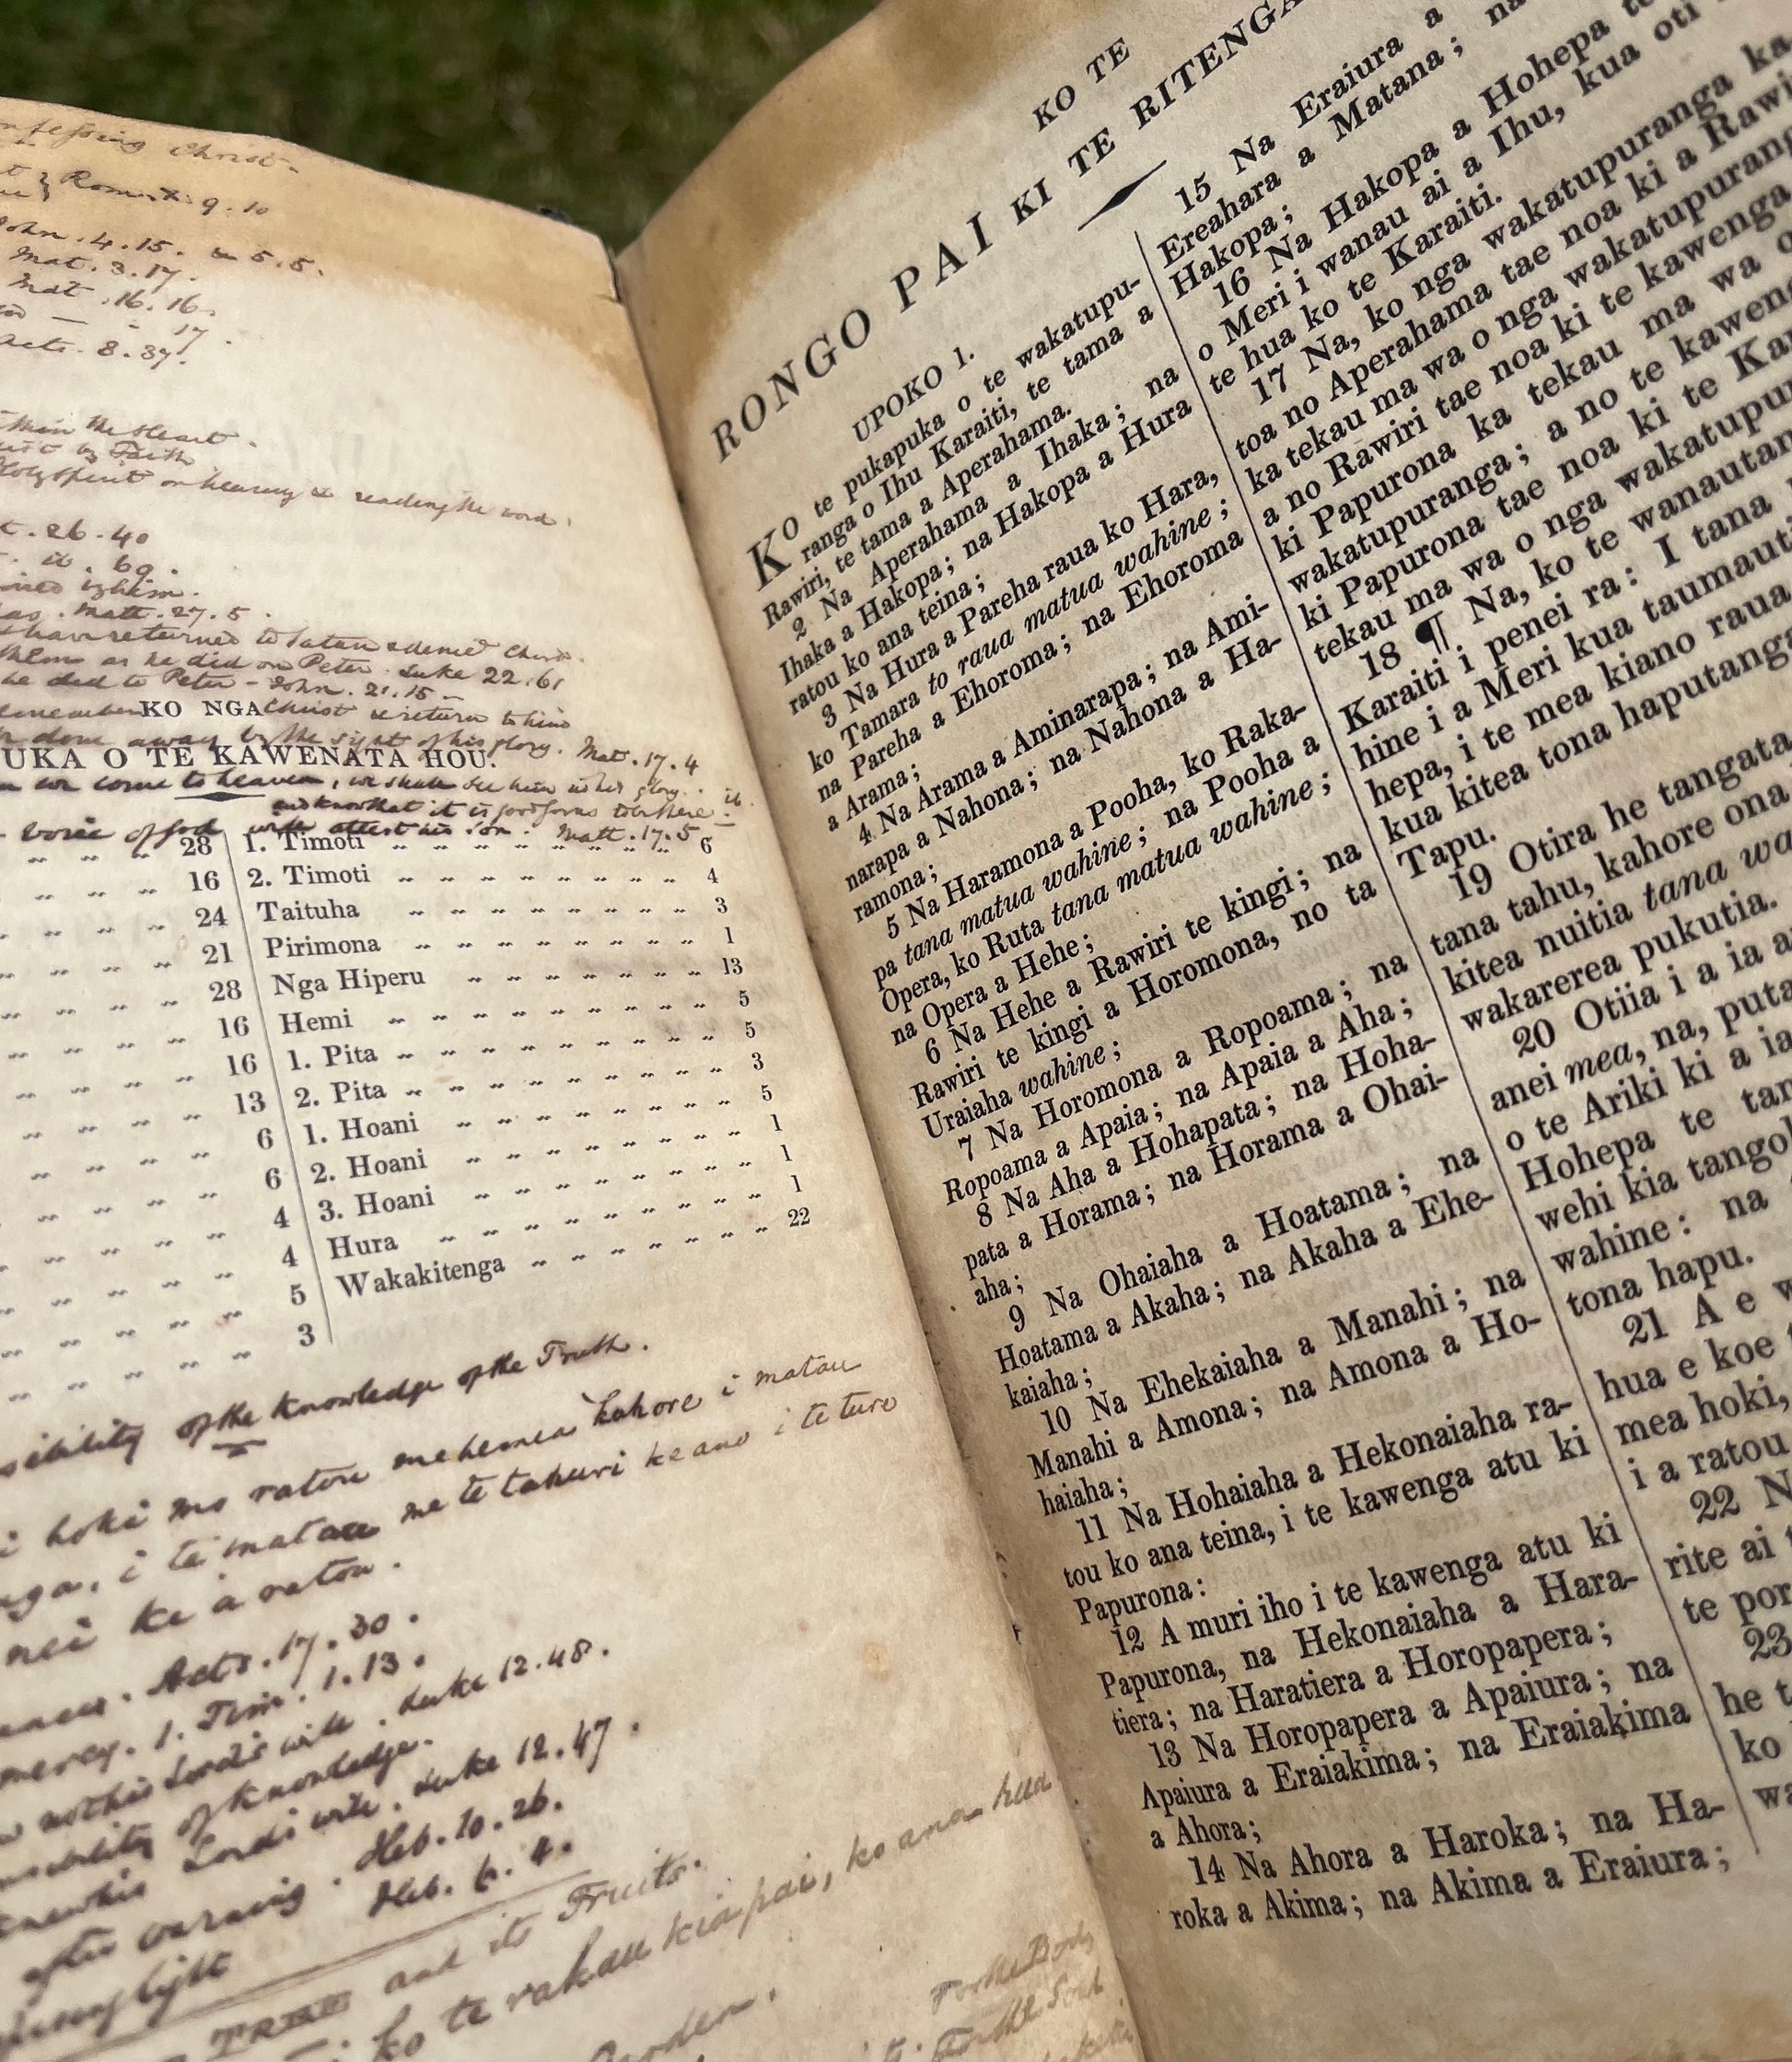 Christ.
Rom. x. 9. 10
John. 4. 15. & 5. 5.
Mat. 3. 17.
Mat. 16. 16.
17.
Acts. 8. 37.
the Heart.
by Faith
Holy Spirit on hearing & reading the word.
26. 40
69.
Matt. 27. 5.
have returned to Satan & denied Christ.
them as he did on Peter. Luke 22. 61
he did to Peter - John. 21. 15 -
remember Christ & return to him
KO NGA
done away by the sight of his glory. Mat. 17. 4
UKA O TE KAWENATA HOU.
we come to heaven, we shall see him in his glory.
and know that it is good for us to be here.
voice of God will attest his Son. Matt. 17. 5
28 1. Timoti 6
16 2. Timoti 4
24 Taituha 3
21 Pirimona 1
28 Nga Hiperu 13
16 Hemi 5
16 1. Pita 5
13 2. Pita 3
6 1. Hoani 5
6 2. Hoani 1
4 3. Hoani 1
4 Hura 1
5 Wakakitenga 22
3
of the Knowledge of the Truth.
hoki mo ratou mehemea kahore i matau
i te matau me te tahuri ke ano i te ture
nei ki a ratou.
Acts. 17. 30.
mercy. 1. Tim. 1. 13.
Lord's will. Luke 12. 48.
of Knowledge.
Lord's will. Luke 12. 47.
after warning. Heb. 10. 26.
Heb. 6. 4.
TREE and its Fruits.
ko te rakau kia pai, ko ana hua
Garden.
For the Body
For the Soul
KO TE
RONGO PAI KI TE RITENGA
UPOKO 1.
KO te pukapuka o te wakatupu-
ranga o Ihu Karaiti, te tama a
Rawiri, te tama a Aperahama.
2 Na Aperahama a Ihaka; na
Ihaka a Hakopa; na Hakopa a Hura
ratou ko ana teina;
3 Na Hura a Pareha raua ko Hara,
ko Tamara to raua matua wahine;
na Pareha a Ehoroma; na Ehoroma
a Arama;
4 Na Arama a Aminarapa; na Ami-
narapa a Nahona; na Nahona a Ha-
ramona;
5 Na Haramona a Pooha, ko Raka-
pa tana matua wahine; na Pooha a
Opera, ko Ruta tana matua wahine;
na Opera a Hehe;
6 Na Hehe a Rawiri te kingi; na
Rawiri te kingi a Horomona, no ta
Uraiaha wahine;
7 Na Horomona a Ropoama; na
Ropoama a Apaia; na Apaia a Aha;
8 Na Aha a Hohapata; na Hoha-
pata a Horama; na Horama a Ohai-
aha;
9 Na Ohaiaha a Hoatama; na
Hoatama a Akaha; na Akaha a Ehe-
kaiaha;
10 Na Ehekaiaha a Manahi; na
Manahi a Amona; na Amona a Ho-
haiaha;
11 Na Hohaiaha a Hekonaiaha ra-
tou ko ana teina, i te kawenga atu ki
Papurona:
12 A muri iho i te kawenga atu ki
Papurona, na Hekonaiaha a Hara-
tiera; na Haratiera a Horopapera;
13 Na Horopapera a Apaiura; na
Apaiura a Eraiakima; na Eraiakima
a Ahora;
14 Na Ahora a Haroka; na Ha-
roka a Akima; na Akima a Eraiura;
15 Na Eraiura a
Ereahara a Matana; na
Hakopa;
16 Na Hakopa a Hohepa te
o Meri i wanau ai a Ihu, kua oti
te hua ko te Karaiti.
17 Na, ko nga wakatupuranga ka
toa no Aperahama tae noa ki a Rawi
ka tekau ma wa o nga wakatupurang
a no Rawiri tae noa ki te kawenga
ki Papurona ka tekau ma wa o
wakatupuranga; a no te kaweng
ki Papurona tae noa ki te Ka
tekau ma wa o nga wakatupu
18 ¶ Na, ko te wanautan
Karaiti i penei ra: I tana
hine i a Meri kua taumaut
hepa, i te mea kiano raua
kua kitea tona haputanga
Tapu.
19 Otira he tangata
tana tahu, kahore ona
kitea nuitia tana wa
wakarerea pukutia.
20 Otiia i a ia a
anei mea, na, puta
o te Ariki ki a ia
Hohepa te tam
wehi kia tango
wahine: na
tona hapu.
21 A e w
hua e koe
mea hoki,
i a ratou
22 N
rite ai
te por
23
he t
ko
wa